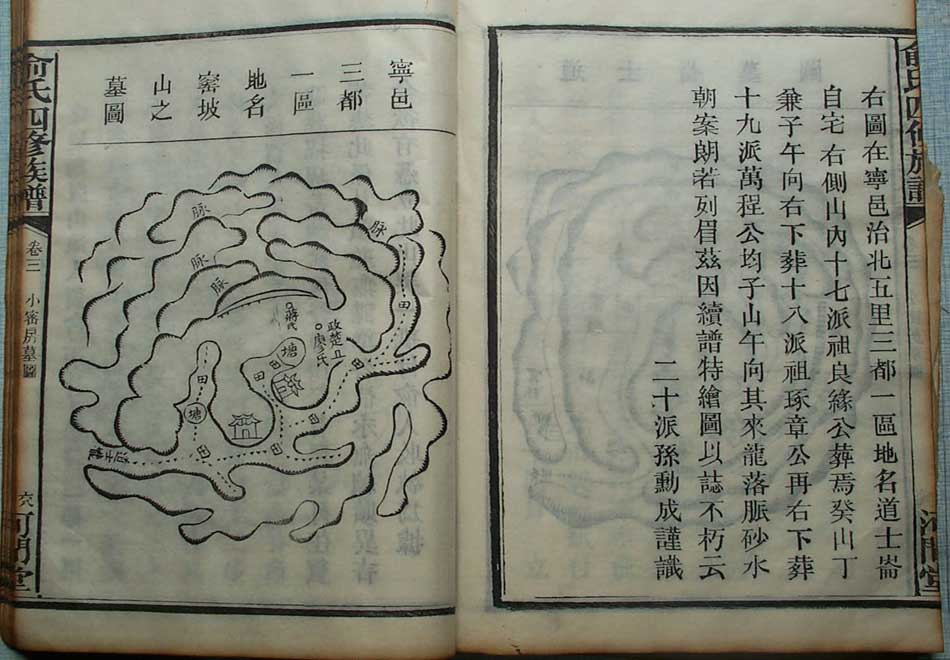 右圖在寧邑治北五里三都一區地名道士崙
自宅右側山內十七派祖良緣公葬焉癸山丁
兼子午向右下葬十八派祖琢章公再右下葬
十九派萬程公均子山午向其來龍落脈砂水
朝案朗若列眉茲因續譜特繪圖以誌不朽云
二十派孫勳成謹識
寧邑
三都
一區
地名
窰坡
山之
墓圖
脉
脉
脉
脉
田
蔣氏
政楚公
廖氏
塘
田
田
田
田
塘
田
田
田
俞氏四修族譜
卷三
小窰房墓圖
六八
河門堂
俞氏四修族譜
河門堂